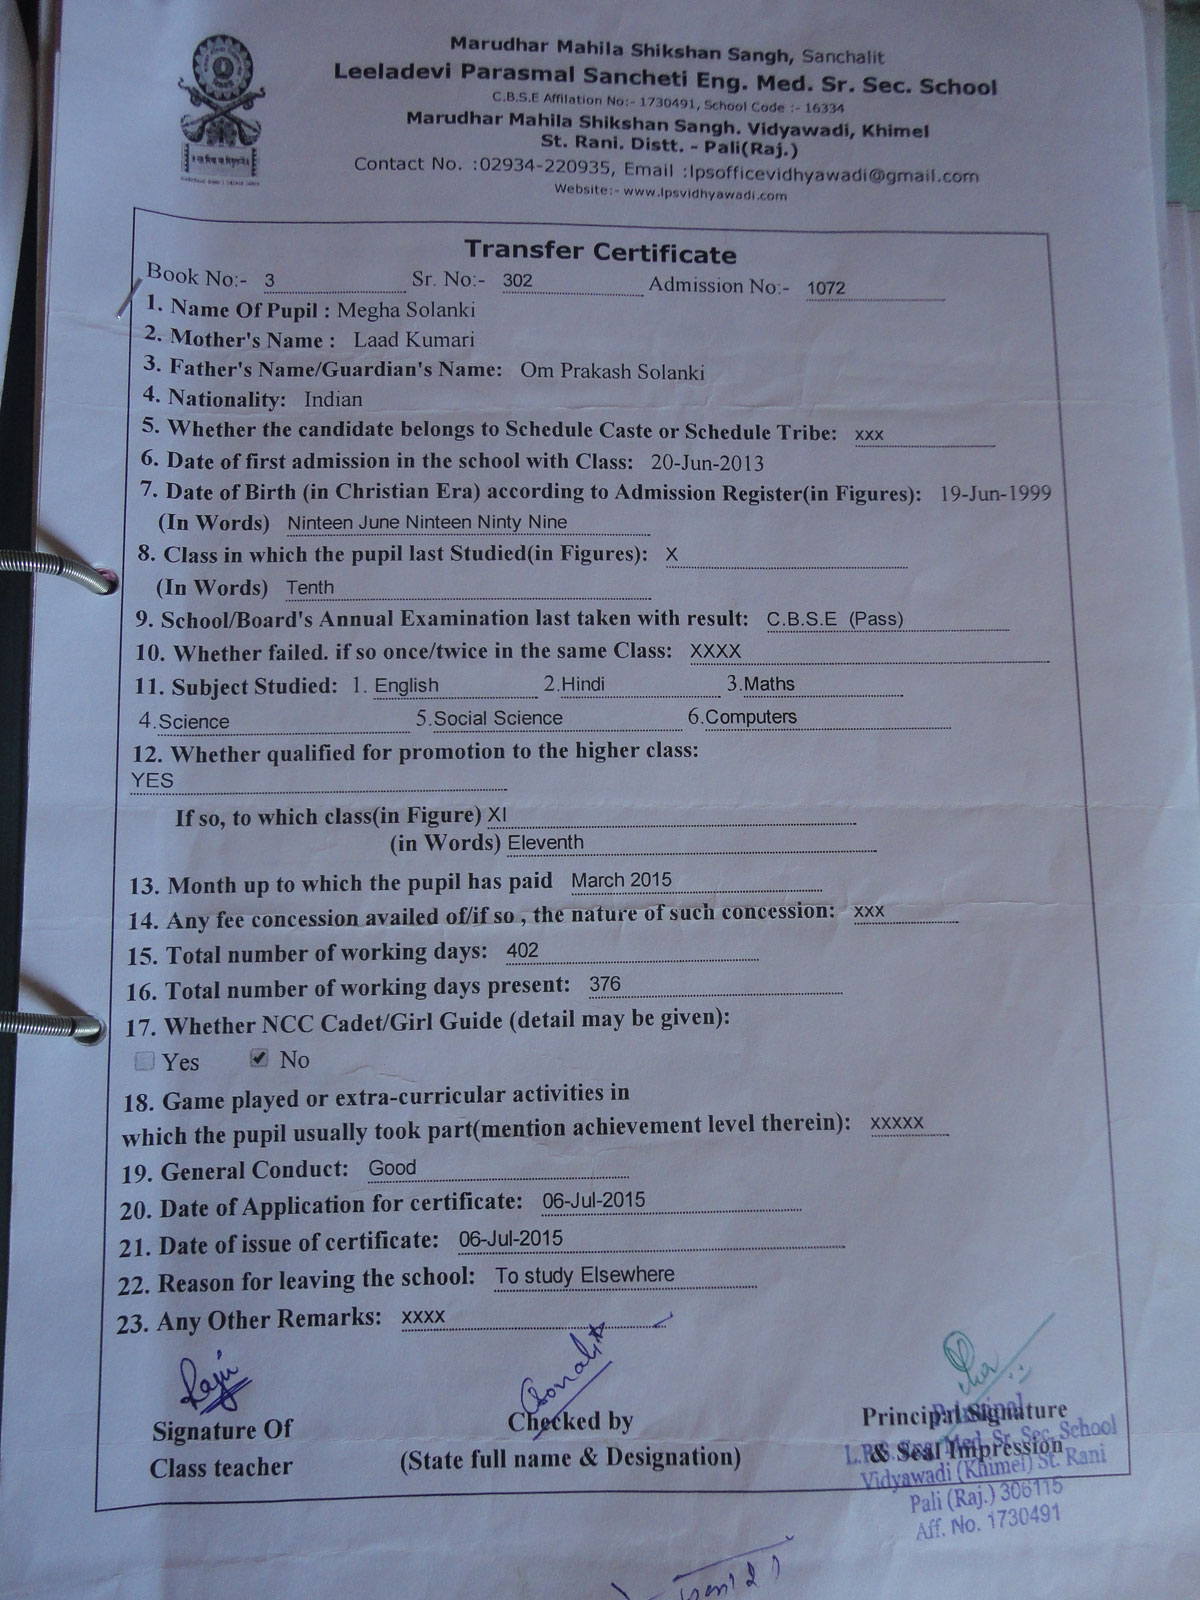 Marudhar Mahila Shikshan Sangh, Sanchalit
Leeladevi Parasmal Sancheti Eng. Med. Sr. Sec. School
C.B.S.E Affilation No:- 1730491, School Code :- 16334
Marudhar Mahila Shikshan Sangh. Vidyawadi, Khimel
St. Rani. Distt. - Pali(Raj.)
Contact No. :02934-220935, Email :lpsofficevidhyawadi@gmail.com
Website:- www.lpsvidhyawadi.com
Transfer Certificate
Book No:- 3 Sr. No:- 302 Admission No:- 1072
1. Name Of Pupil : Megha Solanki
2. Mother's Name : Laad Kumari
3. Father's Name/Guardian's Name: Om Prakash Solanki
4. Nationality: Indian
5. Whether the candidate belongs to Schedule Caste or Schedule Tribe: xxx
6. Date of first admission in the school with Class: 20-Jun-2013
7. Date of Birth (in Christian Era) according to Admission Register(in Figures): 19-Jun-1999
(In Words) Ninteen June Ninteen Ninty Nine
8. Class in which the pupil last Studied(in Figures): X
(In Words) Tenth
9. School/Board's Annual Examination last taken with result: C.B.S.E (Pass)
10. Whether failed. if so once/twice in the same Class: XXXX
11. Subject Studied: 1. English 2.Hindi 3.Maths
4.Science 5.Social Science 6.Computers
12. Whether qualified for promotion to the higher class:
YES
If so, to which class(in Figure) XI
(in Words) Eleventh
13. Month up to which the pupil has paid March 2015
14. Any fee concession availed of/if so , the nature of such concession: xxx
15. Total number of working days: 402
16. Total number of working days present: 376
17. Whether NCC Cadet/Girl Guide (detail may be given):
Yes No
18. Game played or extra-curricular activities in
which the pupil usually took part(mention achievement level therein): xxxxx
19. General Conduct: Good
20. Date of Application for certificate: 06-Jul-2015
21. Date of issue of certificate: 06-Jul-2015
22. Reason for leaving the school: To study Elsewhere
23. Any Other Remarks: xxxx
Signature Of
Class teacher
Checked by
(State full name & Designation)
Principal Signature
& Seal Impression
Principal
Med. Sr. Sec. School
Vidyawadi (Khimel) St. Rani
Pali (Raj.) 306115
Aff. No. 1730491